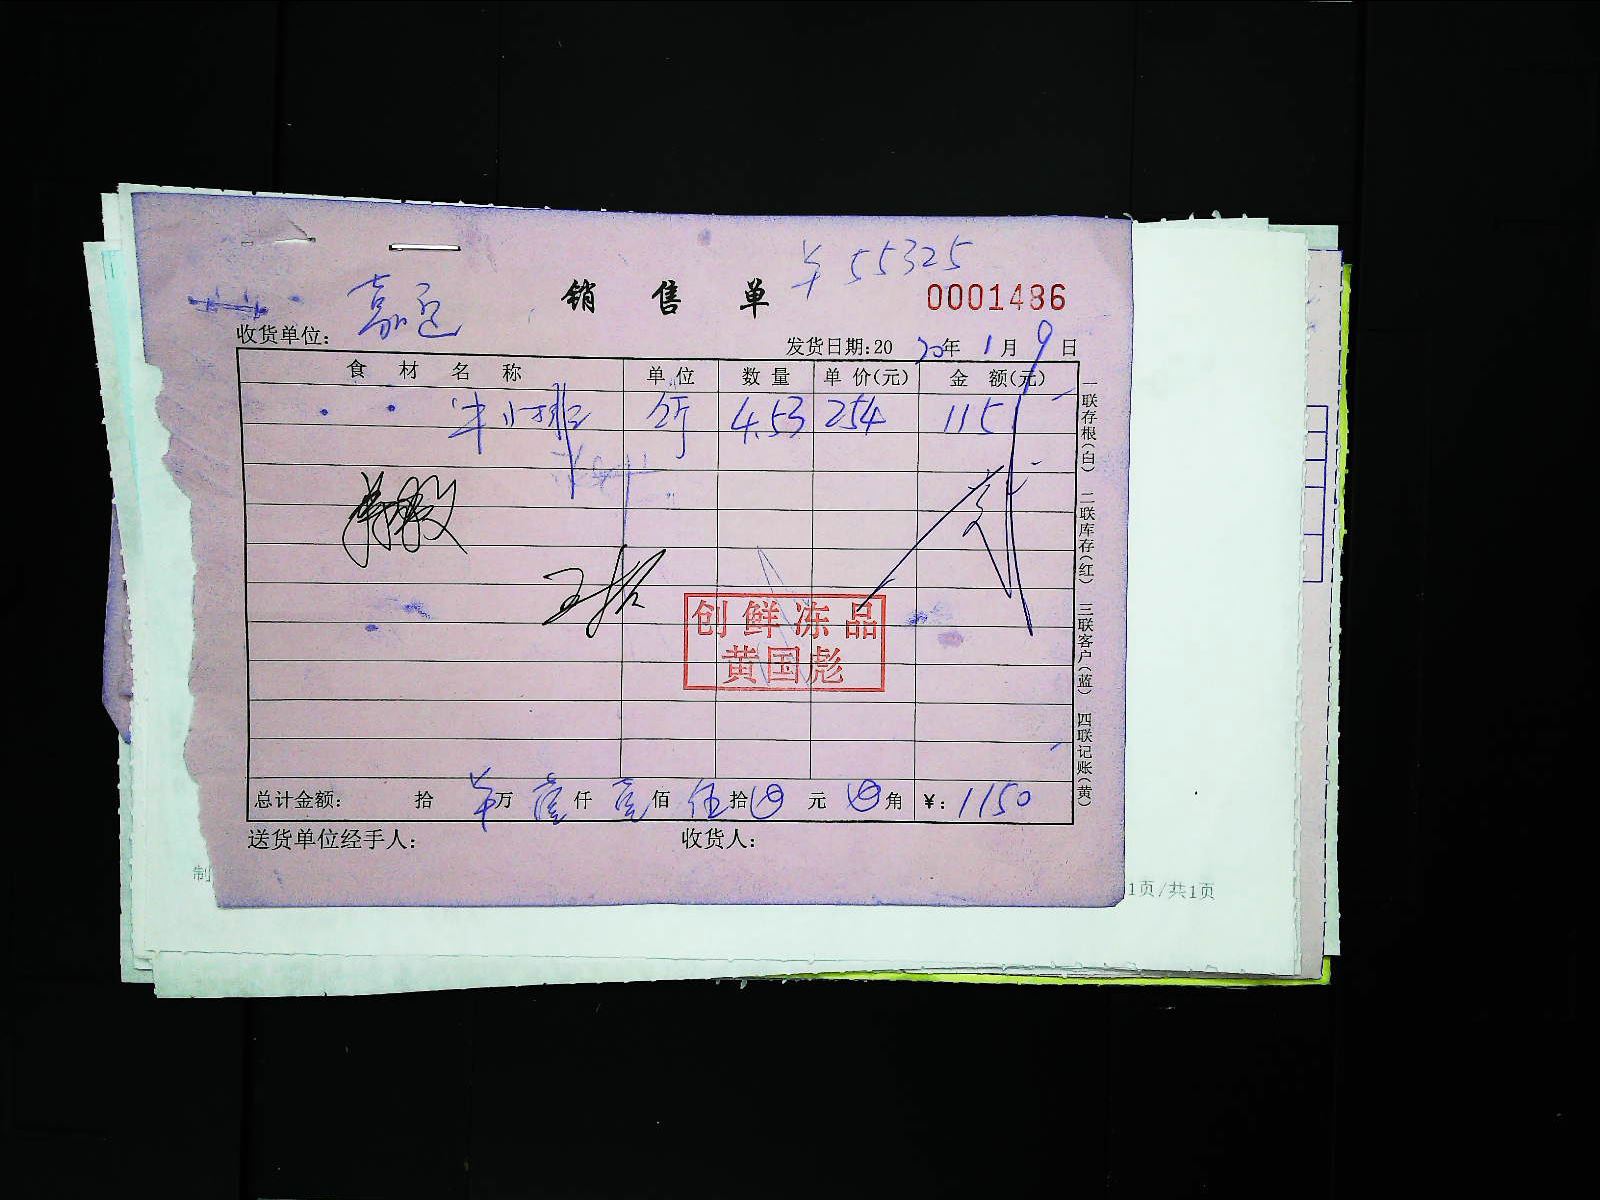 ¥55325
销售单 0001486
收货单位： 嘉
发货日期：2020年1月9日
食材名称 单位 数量 单价（元） 金额（元）
牛小排 斤 4.53 254 1151
王
创鲜冻品
黄国彪
总计金额： 拾 ¥万 壹仟 壹佰 伍拾 ⊗元 ⊗角 ¥：1150
送货单位经手人： 收货人：
一联存根（白） 二联库存（红） 三联客户（蓝） 四联记账（黄）
制
1页/共1页